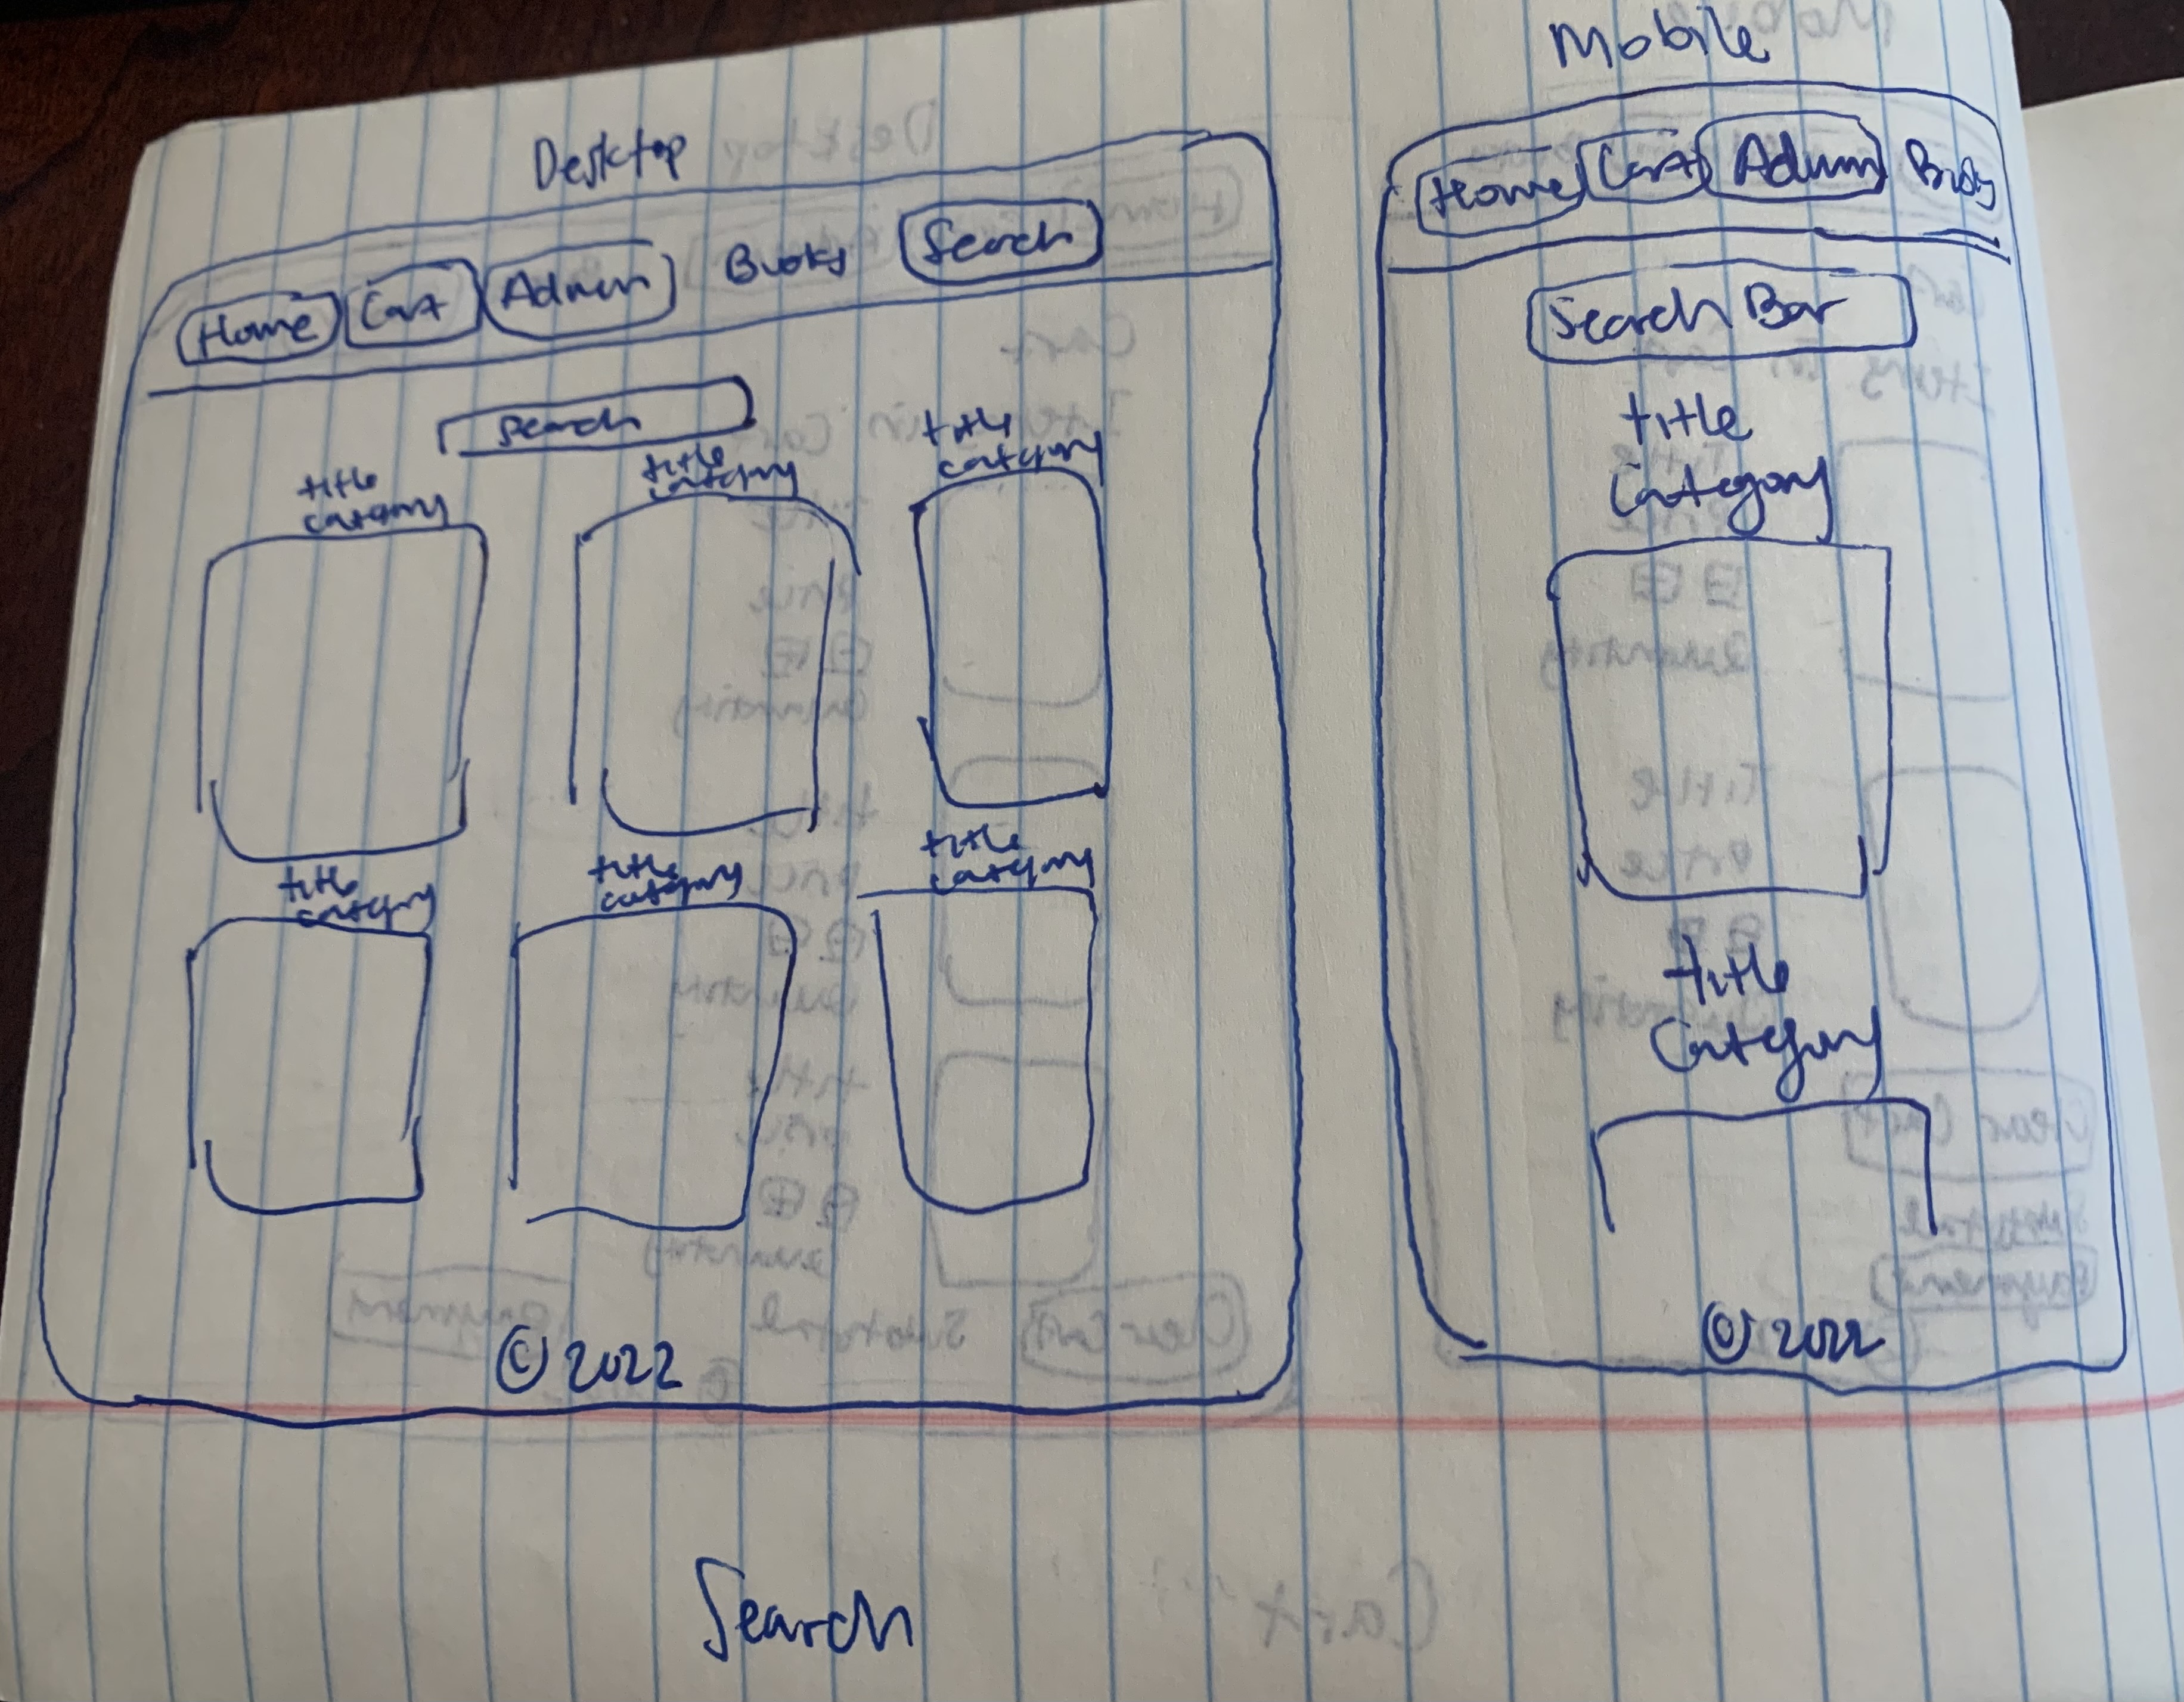 Desktop
Home Cart Admin Books Search
Search
title
category
title
category
title
category
title
category
title
category
title
category
© 2022
Mobile
Home Cart Admin Books
Search Bar
title
Category
title
Category
© 2022
Search